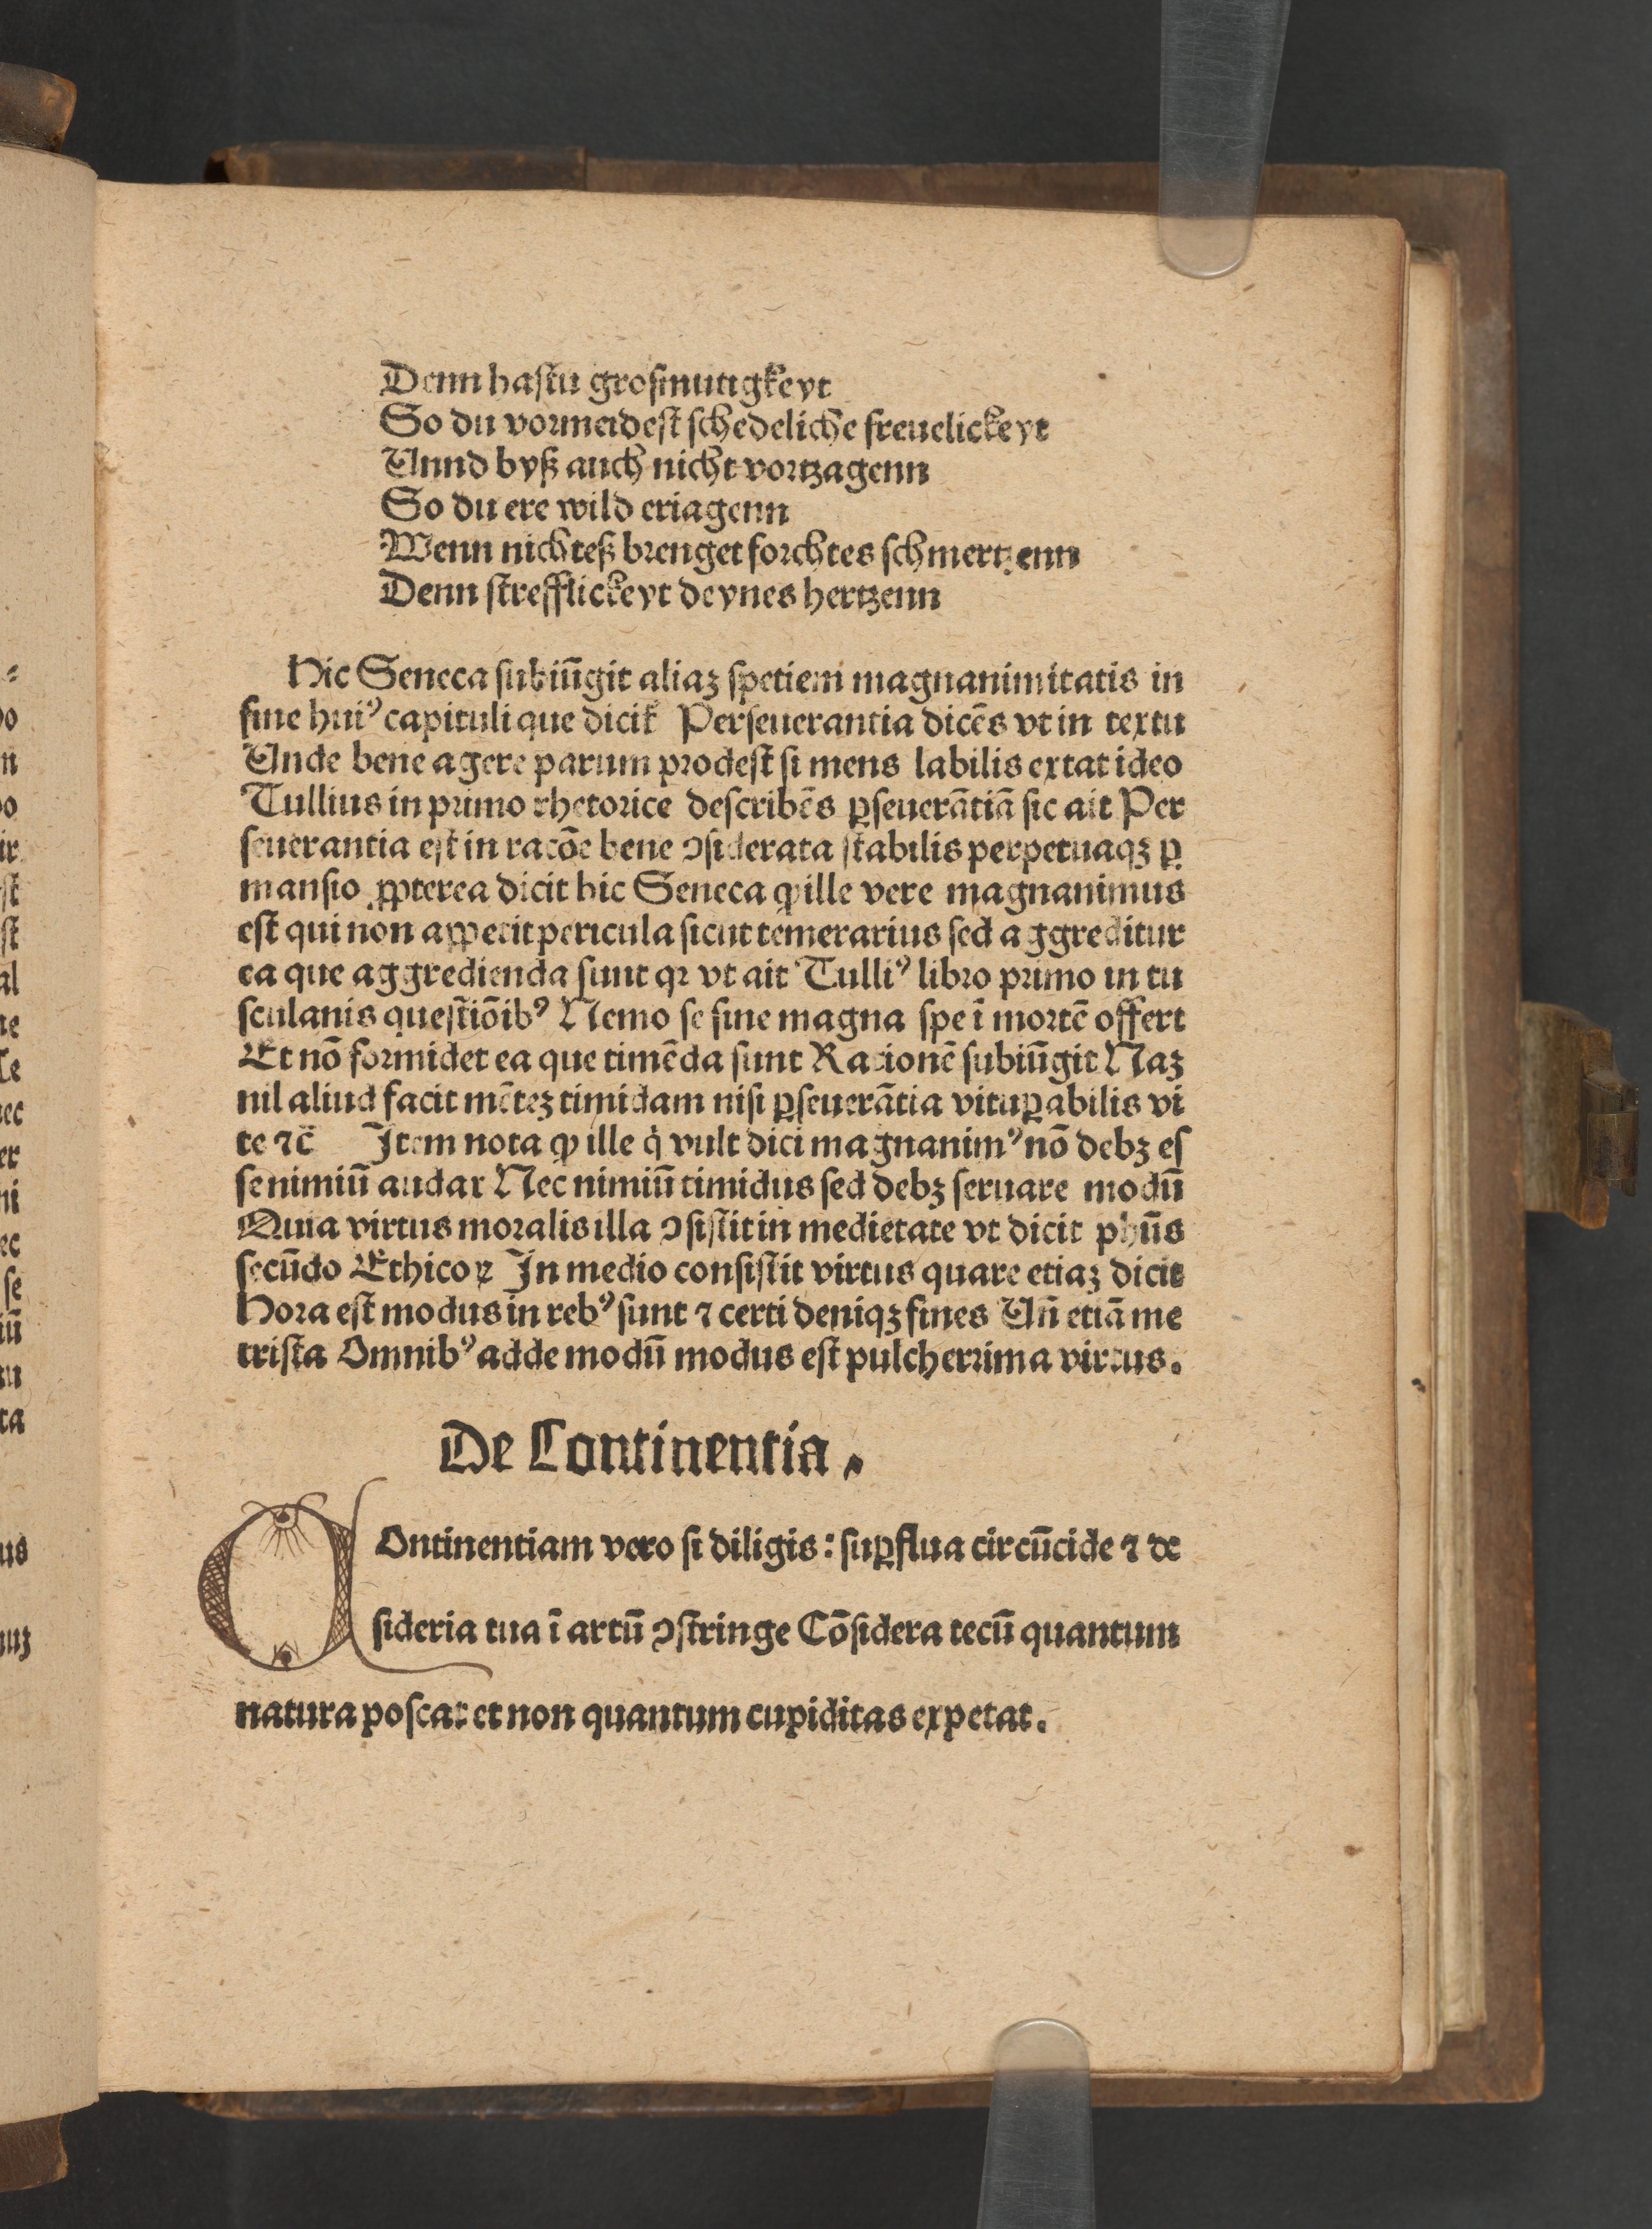 Denn hastu grosmutigkeyt
So du vormeidest schedeliche freuelickeyt
Unnd byß auch nicht vortzagenn
So du ere wild eriagenn
Wenn nichteß brenget forchtes schmertzenn
Denn strefflickeyt deynes hertzenn
Hic Seneca subiūgit aliaꝫ spetiem magnanimitatis in
fine huiꝰ capituli que dicit᷑ Perseuerantia dicēs vt in textu
Unde bene agere parum prodest si mens labilis extat ideo
Tullius in primo rhetorice describēs ꝑseuerātiā sic ait Per
seuerantia est in racōe bene ꝯsiderata stabilis perpetuaqꝫ ꝑ
mansio ꝓpterea dicit hic Seneca ꝙ ille vere magnanimus
est qui non appetit pericula sicut temerarius sed aggreditur
ea que aggredienda sunt qꝛ vt ait Tulliꝰ libro primo in tu
sculanis questiōibꝰ Nemo se sine magna spe ī mortē offert
Et nō formidet ea que timēda sunt Racionē subiūgit Naꝫ
nil aliud facit mēteꝫ timidam nisi ꝑseuerātia vituꝑabilis vi
te ⁊c̄ Item nota ꝙ ille q̇ vult dici magnanimꝰ nō debꝫ es
se nimiū audax Nec nimiū timidus sed debꝫ seruare modū
Quia virtus moralis illa ꝯsistit in medietate vt dicit phūs
secūdo Ethicoꝝ In medio consistit virtus quare etiaꝫ dicit
Hora est modus in rebꝰ sunt ⁊ certi deniqꝫ fines Un̄ etiā me
trista Omnibꝰ adde modū modus est pulcherrima virtus.
De Continentia.
COntinentiam vero si diligis: suꝑflua circūcide ⁊ de
sideria tua ī artū ꝯstringe Cōsidera tecū quantum
natura poscat et non quantum cupiditas expetat.